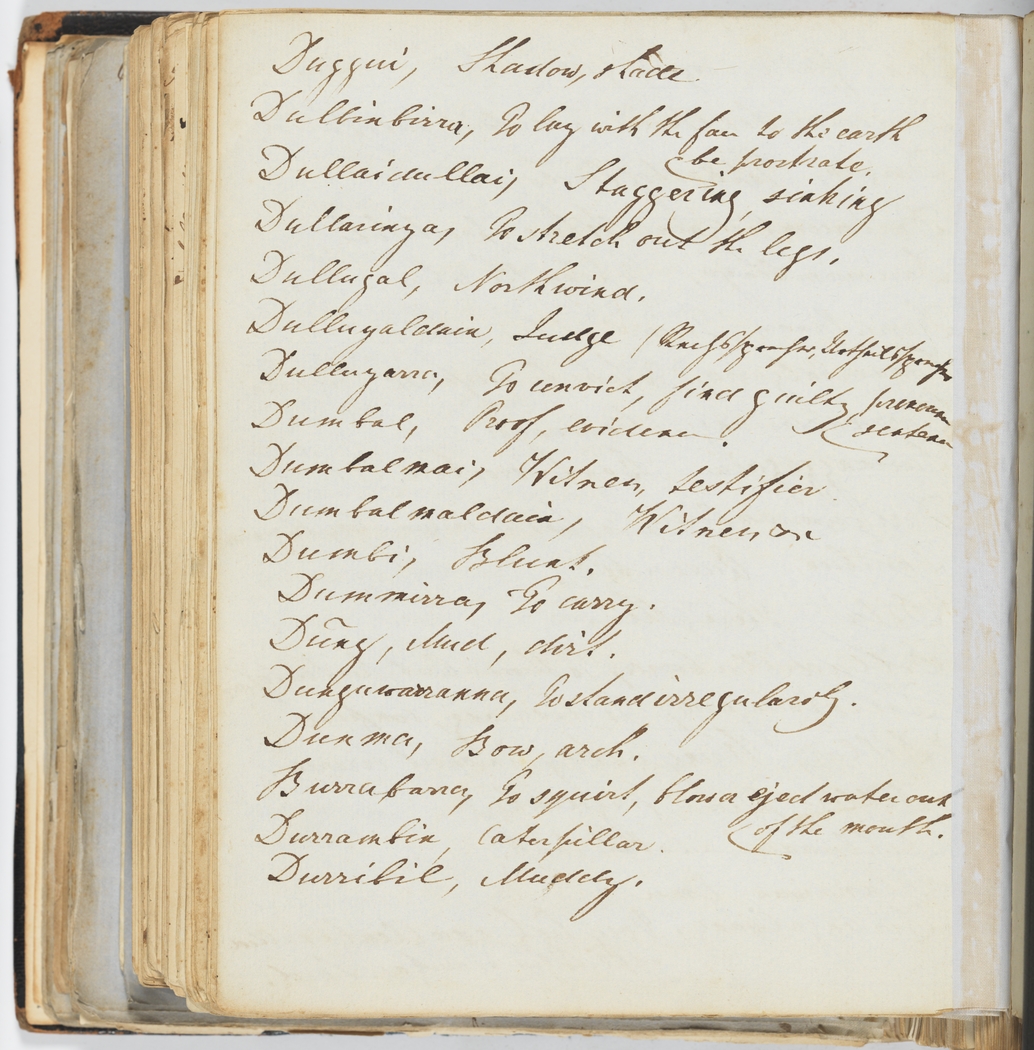 Duggui, Shadow, shade.
Dulbinbirra, To lay with the face to the earth
(be prostrate.
Dullaidullai, Staggering, sinking
Dullaringa, To stretch out the legs.
Dullugal, Northwind.
Dullugaldain, Judge (Rechtssprecher, Urtheilssprecher
Dullugarra, To convict, find guilty, pronounce
(sentence
Dumbal, Proof, evidence.
Dumbalmai, Witness, testifier.
Dumbalmaldain, Witnesser
Dumbi, Blunt.
Dummirra, To carry.
Dūng, Mud, dirt.
Dungawarranna, To stand irregularly.
Dunma, Bow, arch.
Burrabarra, To squirt, blow or eject water out
(of the mouth.
Durrambin, Caterpillar.
Durribil, Muddy.